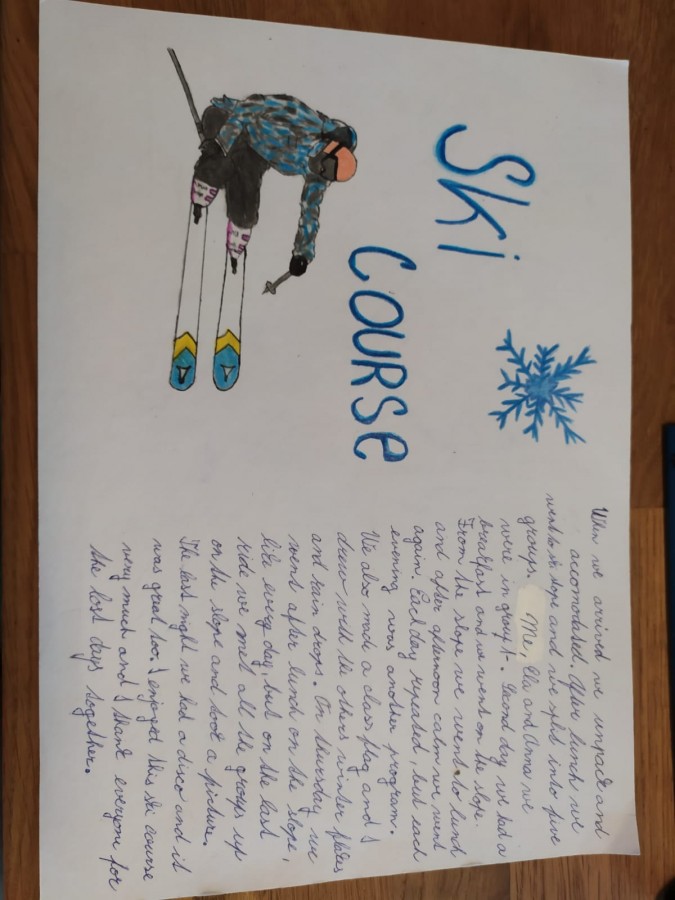 Ski
COURSE
When we arrived we unpack and
accomodated. After lunch we
went to the slope and we split into five
groups. Me, Ela and Anna we
were in group 1. Second day we had a
breakfast and we went on the slope.
From the slope we went to lunch
and after afternoon calm we went
again. Each day repeated, but each
evening was another program.
We also made a class flag and I
drew with the others winter flakes
and rain drops. On thursday we
went after lunch on the slope,
like every day, but on the last
ride we met all the groups up
on the slope and took a picture.
The last night we had a disco and it
was great too. I enjoyed this ski course
very much and I thank everyone for
the best days together.